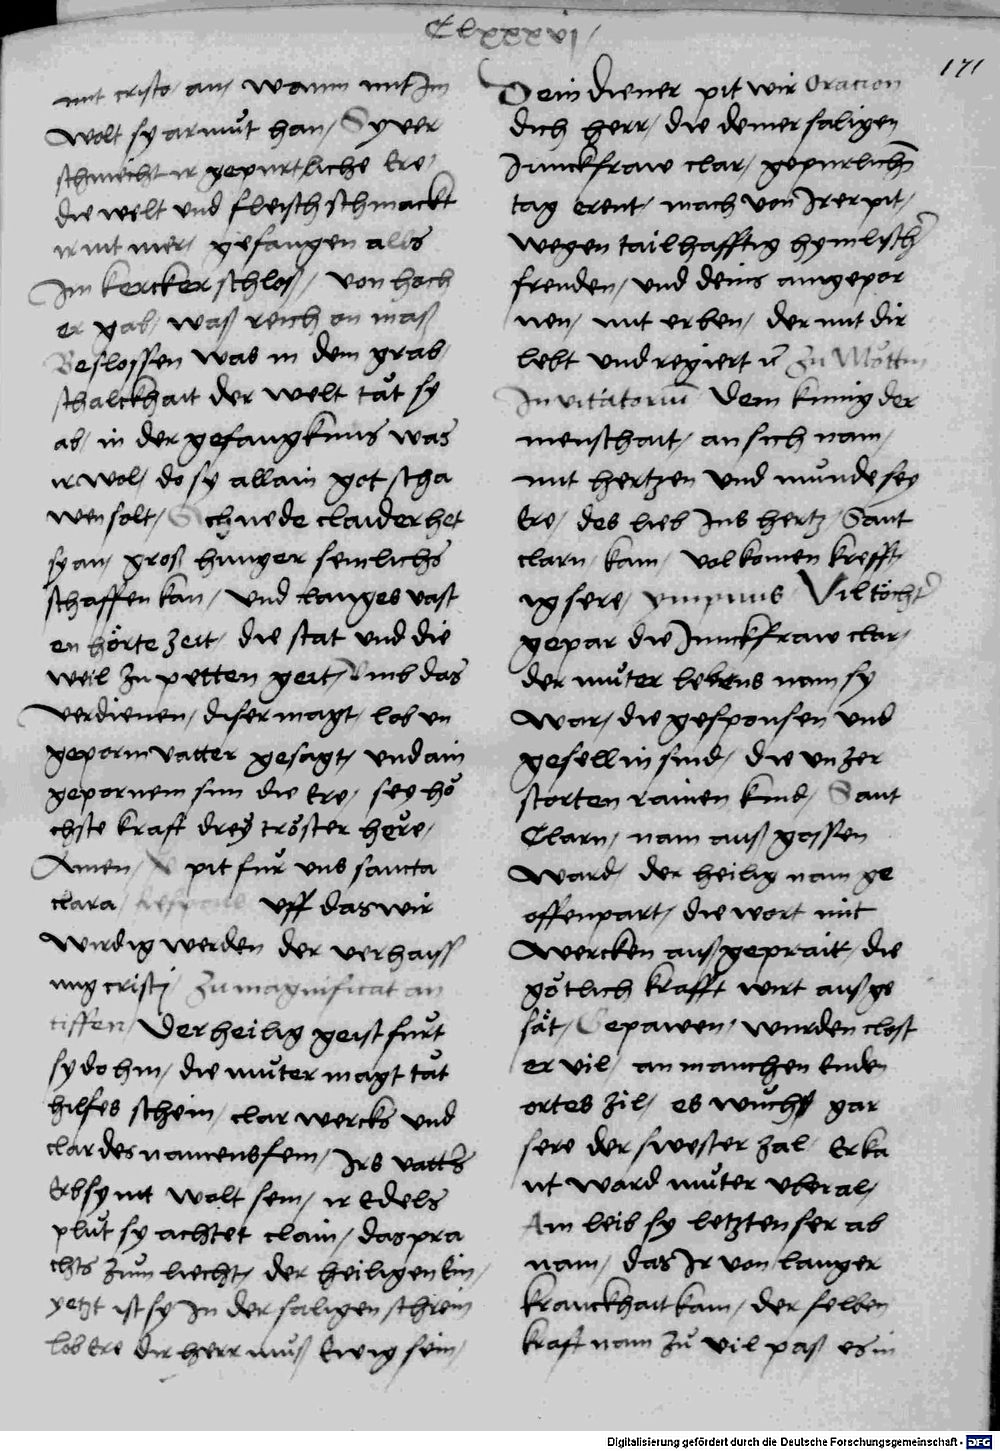 Clxxxvi /
171
mit cristo / an / wann mit Im
wolt sy armůt han / Sy ver
schmecht ir gepurtliche Ere /
die welt vnd fleisch schmackt
ir nit mer / gefangen alls
Im kercker schloß / von hoch
er gab / waß reich on maß
Beslossen was in dem grab /
schalckhait der welt tůt sy
ab / in der gefangknus was
ir wol / do sy allain got scha
wen solt / Schnede claider het
sy an / groß hunger semlichs
schaffen kan / vnd langes vast
en hörte zeit / die stat vnd die
weil zu petten geit / Vmb das
verdienen / diser magt / lob vn
geporm vatter gesagt / vnd ain
gepornem sun die Ere / sey hö
chste kraft dreÿ tröster here /
Amen / V pit für vns sancta
clara / Respons vff das wir
wirdig werden der verhaiss
ung cristi / zu magnificat an
tiffen / Der heilig geist furt
sy do hin / die můter magt tůt
hilfes schein / clar wercks vnd
clar des namens sein / Irs vatters
Erb sy nit wolt sein / ir Edels
plůt sy achtet clain / das pra
chts zům liecht / der heiligen ein /
yetzt ist sy In der saligen schrein
lob Ere dir herr můß Ewig sein /
Dein diener pit wir Oracion
dich herr / die deiner saligen
Junckfraw clar / gepurlichn
tag erent / mach von Irer pit /
wegen tailhafftig hymlischer
freuden / vnd deins aingepor
nen / mit erben / der mit dir
lebt vnd regiert ꝛc zu Mottin
Invitatorium Dem kunig der
menschait / an sich nam /
mit hertzen vnd munde sey
Ere / des lieb Ins hertz / Sant
clarn / kam / volkomen krefft
ig sere / ympnus Vil töchter
gepar die Junckfraw clar /
der můter lebens nam sy
war / die gesponsen vnd
gesellin sind / die vnzer
storten rainen kind / Sant
Clarn / nam auß gossen
ward / der heilig nam ge
offenpart / die wort mit
wercken auß geprait / die
götlich krafft wirt auß ge
sät / Gepawen / wurden clost
er vil / an manchen Enden
ortes zil / es wuchß gar
sere der swester zal Erka
nt ward můter vberal /
Am leib sy letzten ser ab
nam / das Ir von langer
kranckhait kam / der selben
kraft nam zů vil paß es in
Digitalisierung gefördert durch die Deutsche Forschungsgemeinschaft - DFG